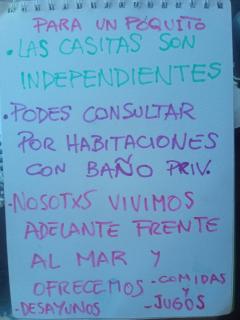 PARA UN PÓQUITO
• LAS CASITAS SON
INDEPENDIENTES
• PODES CONSULTAR
POR HABITACIONES
CON BAÑO PRIV.
• NOSOTXS VIVIMOS
ADELANTE FRENTE
AL MAR Y
OFRECEMOS - COMIDAS
- DESAYUNOS - JUGOS